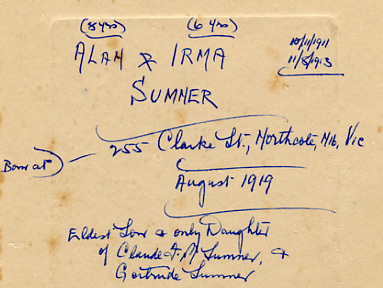 (8 yrs) (6 yrs)
ALAN & IRMA
10/11/1911
11/8/1913
SUMNER
Born at
255 Clarke St., Northcote, Mlb, Vic
August 1919
Eldest Son & only Daughter
of Claude A. M. Sumner, &
Gertrude Sumner